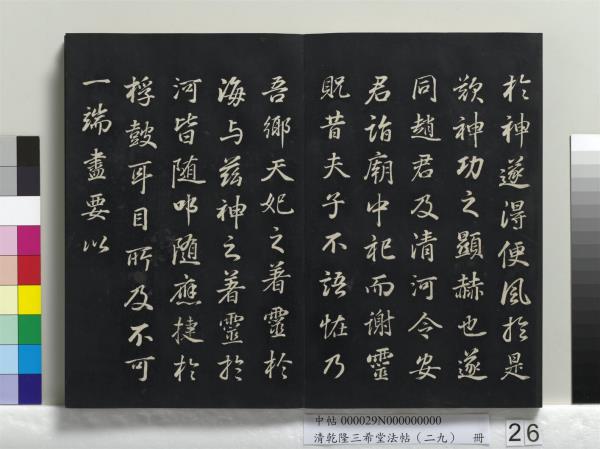 於神遂得便風於是
歎神功之顯赫也遂
同趙君及清河令安
君詣廟中祀而謝靈
貺昔夫子不語恠乃
吾鄉天妃之著靈於
海与茲神之著靈於
河皆随叩随應捷於
桴鼓耳目所及不可
一端盡要以
中帖 000029N000000000
清乾隆三希堂法帖（二九） 冊
26